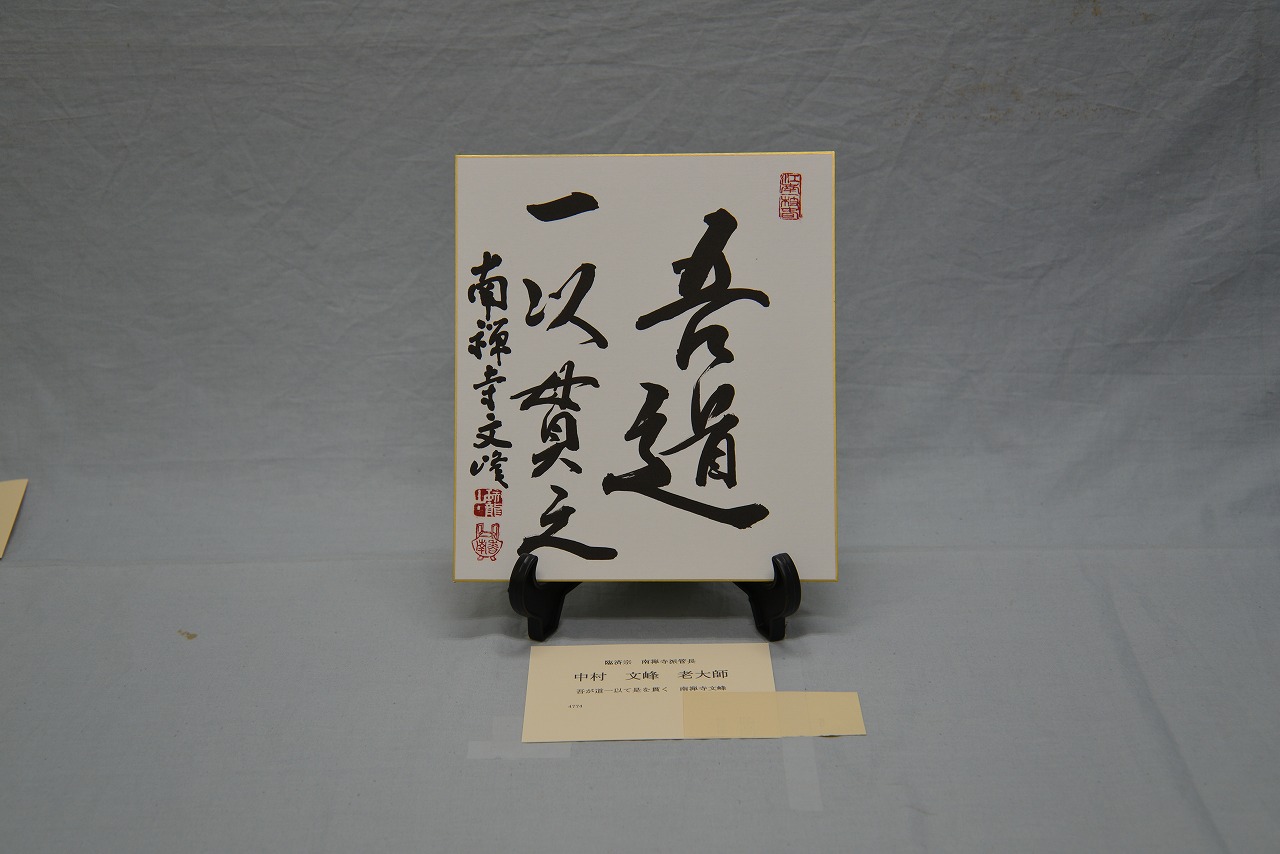 吾道
一以貫之
南禅寺文峰
臨済宗　南禅寺派管長
中村　文峰　老大師
吾が道一以て是を貫く　南禅寺文峰
4774